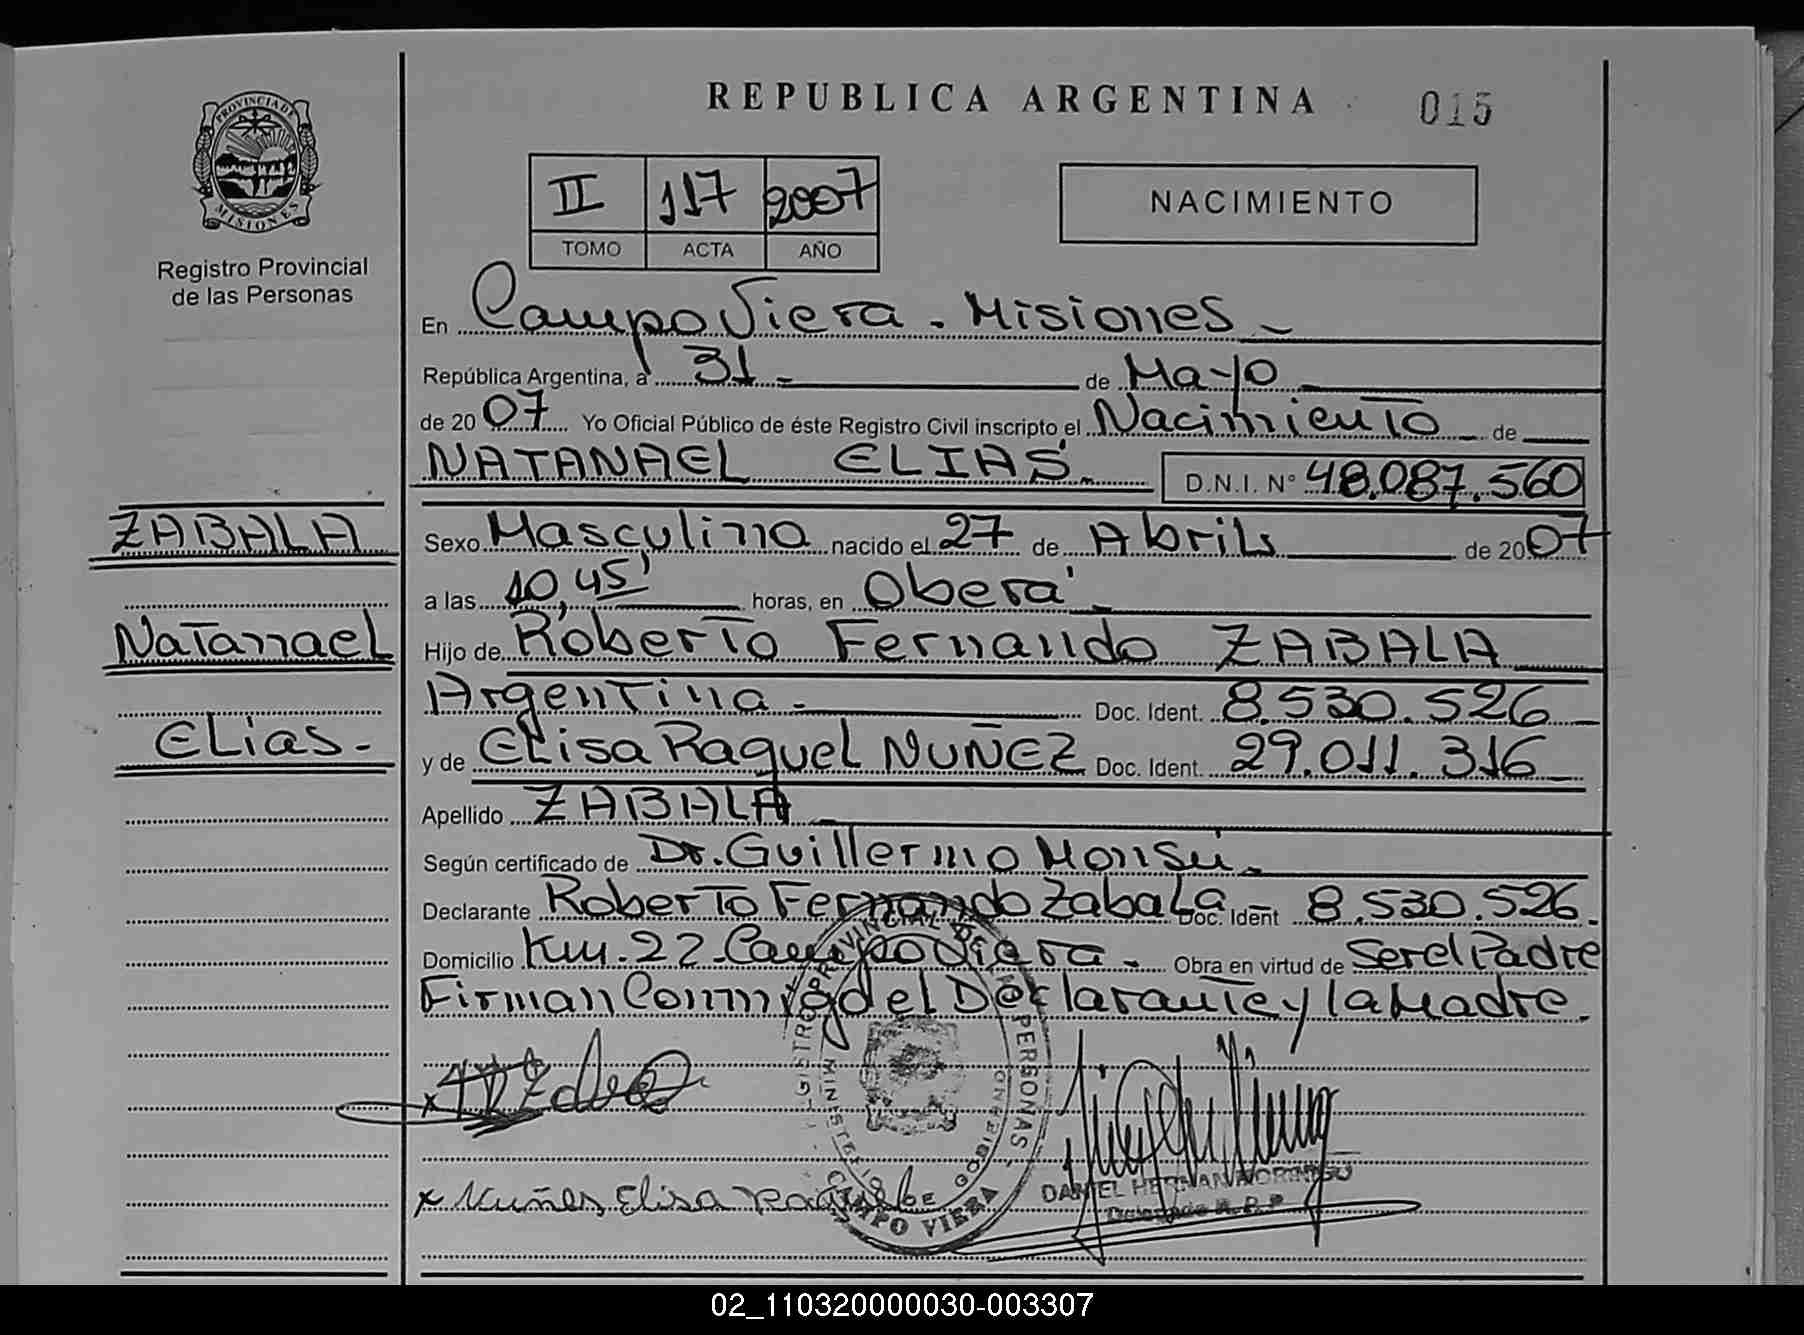 REPUBLICA ARGENTINA
015
PROVINCIA DE
MISIONES
Registro Provincial
de las Personas
II 117 2007
TOMO ACTA AÑO
NACIMIENTO
En Campo Viera - Misiones -
República Argentina, a 31 - de Mayo -
de 2007 Yo Oficial Público de éste Registro Civil inscripto el Nacimiento de
NATANAEL ELIAS. D.N.I. N° 48.087.560
ZABALA
Natanael
Elias.-
Sexo Masculino nacido el 27 de Abril de 2007
a las 10,45' horas, en Oberá -
Hijo de Roberto Fernando ZABALA
Argentina - Doc. Ident. 8.530.526
y de Elisa Raquel NUÑEZ Doc. Ident. 29.011.316
Apellido ZABALA -
Según certificado de Dr. Guillermo Monsú -
Declarante Roberto Fernando Zabala Doc. Ident 8.530.526.
Domicilio Km. 22 - Campo Viera - Obra en virtud de Ser el Padre
Firman Conmigo el Declarante y la Madre.
REGISTRO PROVINCIAL DE LAS PERSONAS -
MINISTERIO DE GOBIERNO
CAMPO VIERA
x Nuñes Elisa Raquel
DANIEL HERNAN
Delegado R. P. P.
02_110320000030-003307